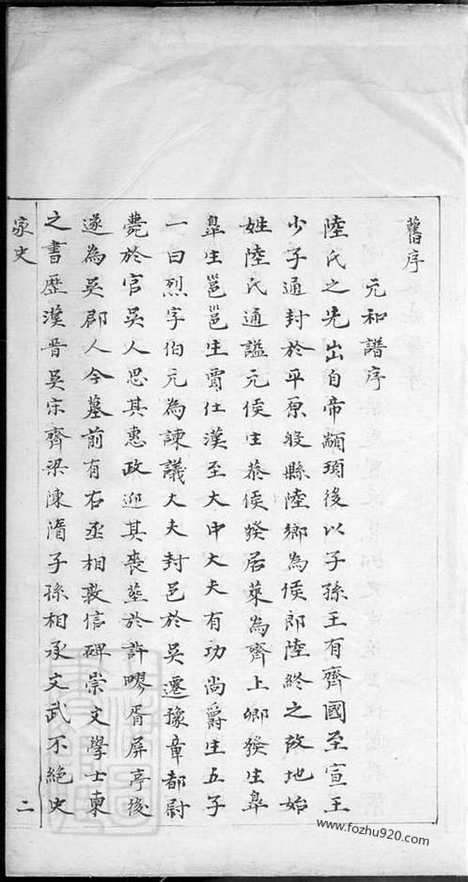 舊序
元和譜序
陸氏之先出自帝顓頊後以子孫王有齊國至宣王
少子通封於平原般縣陸鄉為侯郎陸終之故地始
姓陸氏通謚元侯生恭侯發居萊為齊上卿發生皐
皐生邕邕生賈仕漢至大中大夫有功尚爵生五子
一曰烈字伯元為諫議大夫封邑於吳遷豫章都尉
薨於官吳人思其惠政迎其喪塟於許㟉胥屏亭後
遂為吳郡人今墓前有右丞相敦信碑崇文學士柬
之書歷漢晉吳宋齊梁陳隋子孫相承文武不絕史
家史
二
www.fozhu920.com